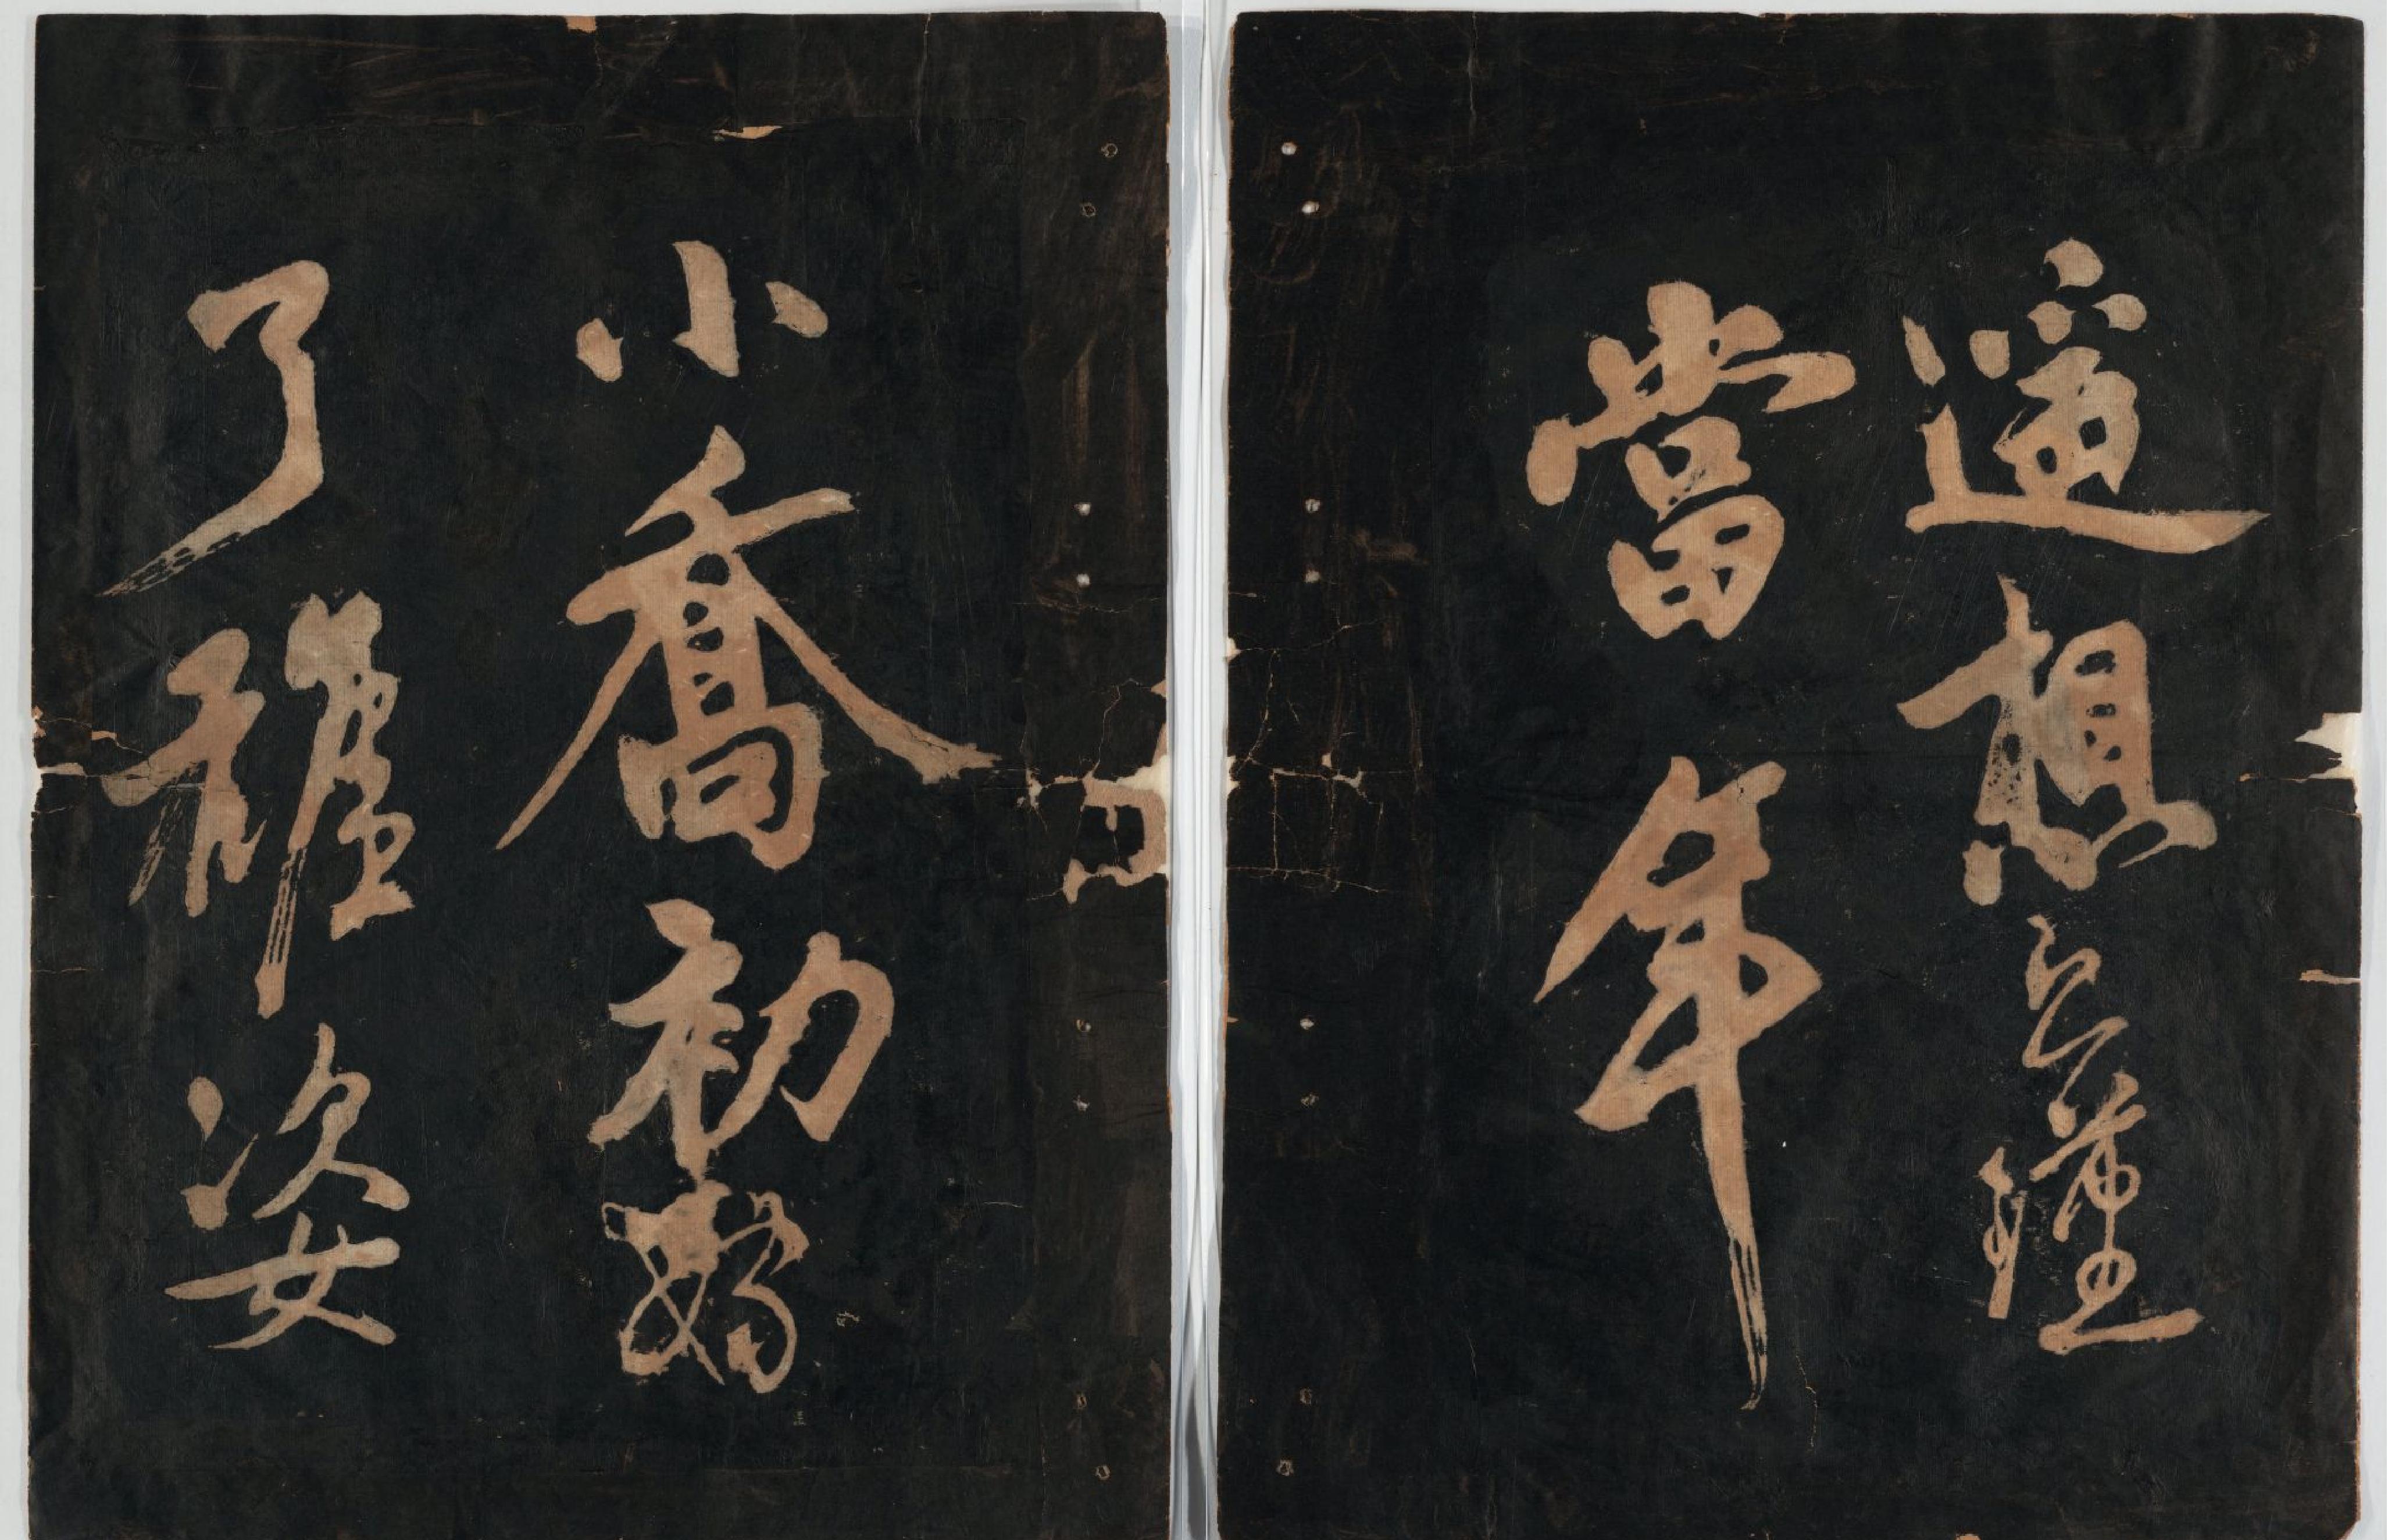 遙想公瑾
當年
小喬初嫁
了雄姿